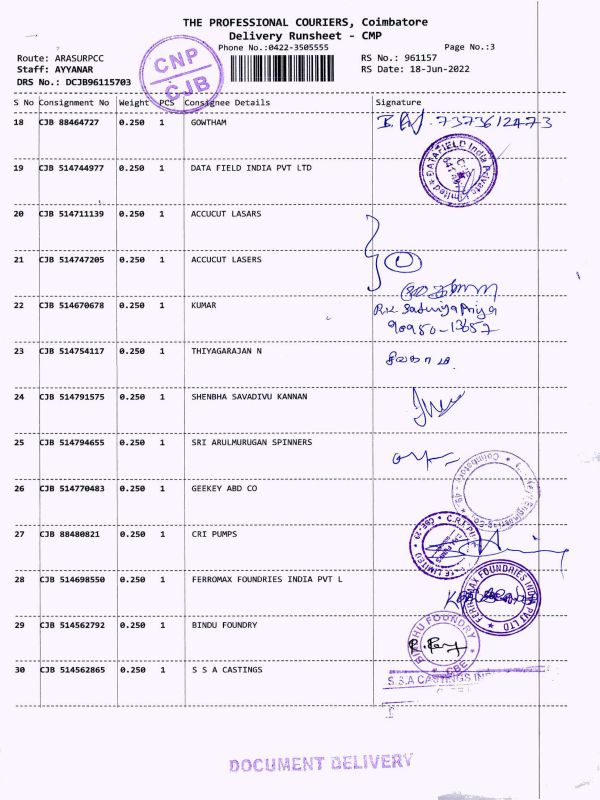 THE PROFESSIONAL COURIERS, Coimbatore
Delivery Runsheet - CMP
Phone No.:0422-3505555
Page No.:3
Route: ARASURPCC
RS No.: 961157
Staff: AYYANAR
RS Date: 18-Jun-2022
DRS No.: DCJB96115703
CNP
CJB
S No Consignment No Weight PCS Consignee Details Signature
18 CJB 88464727 0.250 1 GOWTHAM 7373612473
19 CJB 514744977 0.250 1 DATA FIELD INDIA PVT LTD
DATAFIELD India Private Limited
20 CJB 514711139 0.250 1 ACCUCUT LASARS
21 CJB 514747205 0.250 1 ACCUCUT LASERS
22 CJB 514670678 0.250 1 KUMAR
90950-13657
23 CJB 514754117 0.250 1 THIYAGARAJAN N
24 CJB 514791575 0.250 1 SHENBHA SAVADIVU KANNAN
25 CJB 514794655 0.250 1 SRI ARULMURUGAN SPINNERS
26 CJB 514770483 0.250 1 GEEKEY ABD CO
27 CJB 88480821 0.250 1 CRI PUMPS
28 CJB 514698550 0.250 1 FERROMAX FOUNDRIES INDIA PVT L
FERROMAX FOUNDRIES INDIA PVT LTD
29 CJB 514562792 0.250 1 BINDU FOUNDRY
BINDHU FOUNDRY
CBE
30 CJB 514562865 0.250 1 S S A CASTINGS
S.S.A CASTINGS
DOCUMENT DELIVERY